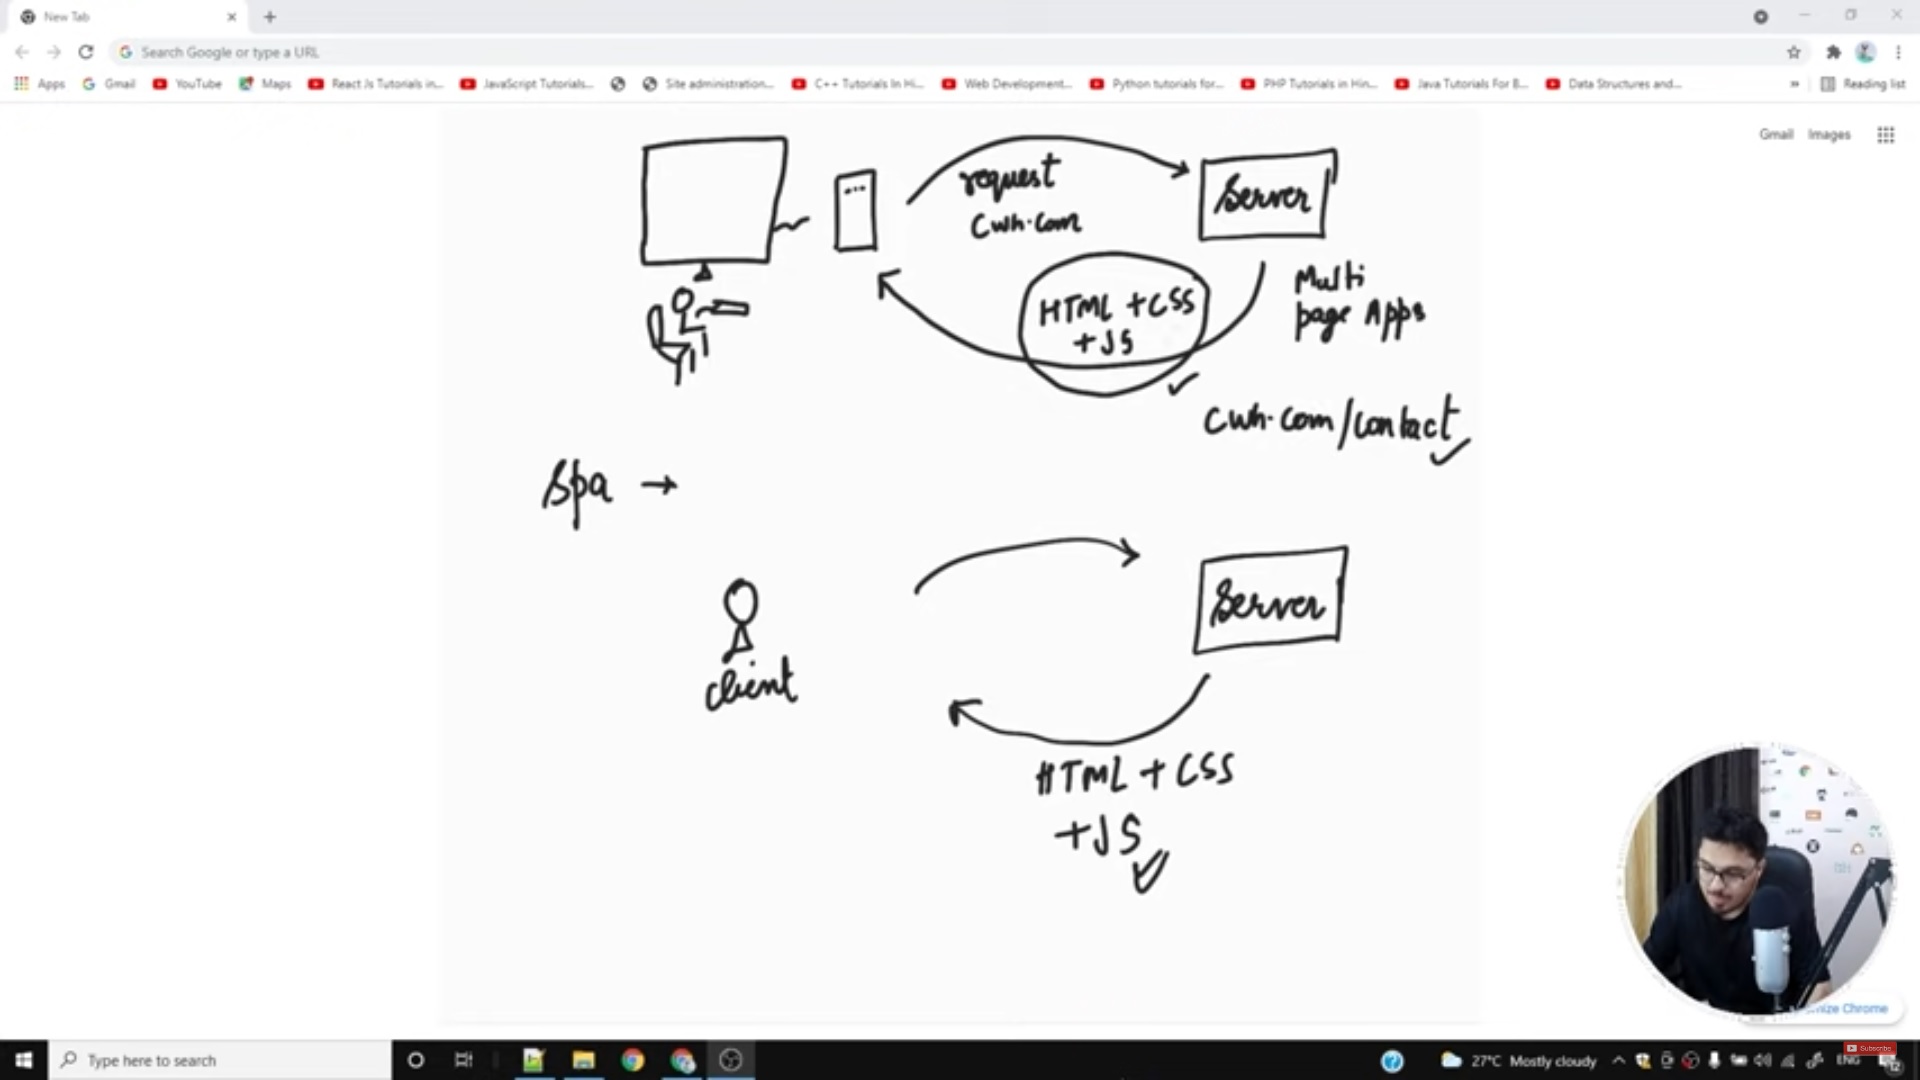 New Tab
Search Google or type a URL
Apps Gmail YouTube Maps React Js Tutorials in... JavaScript Tutorials... Site administration... C++ Tutorials In Hi... Web Development... Python tutorials for... PHP Tutorials in Hin... Java Tutorials For B... Data Structures and... » Reading list
Gmail Images
request
Cwh.com
Server
HTML + CSS
+ JS
Multi
page Apps
Cwh.com/contact
Spa →
Server
client
HTML + CSS
+ JS
Chrome
Type here to search
27°C Mostly cloudy
ENG
Subscribe
12